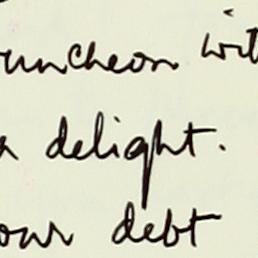 uncheon wit
a delight.
our debt